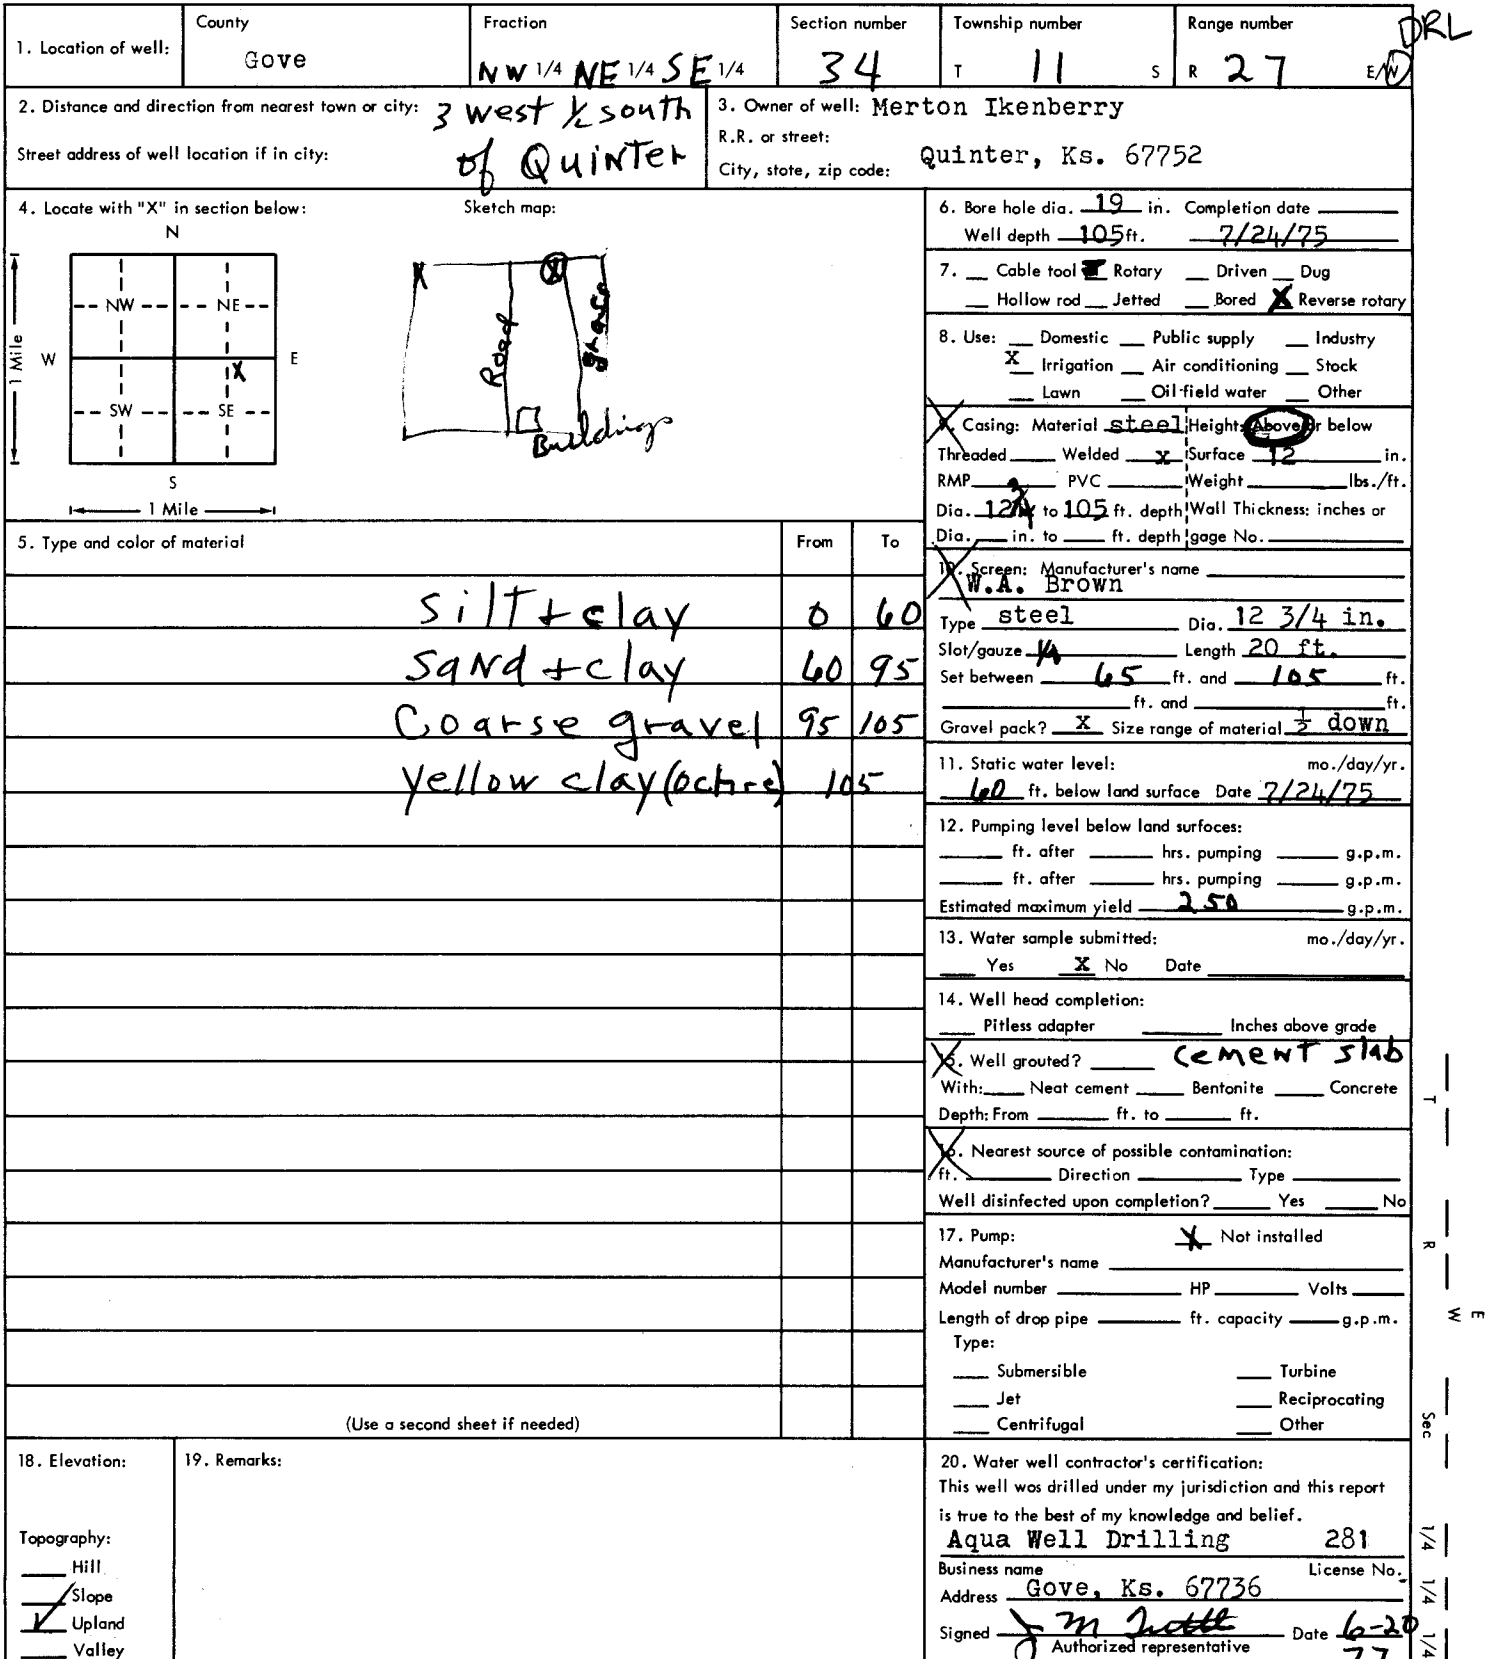 DRL
County Fraction Section number Township number Range number
1. Location of well: Gove NW 1/4 NE 1/4 SE 1/4 34 T 11 S R 27 E/W
2. Distance and direction from nearest town or city: 3 west 1/2 south
of Quinter
Street address of well location if in city:
3. Owner of well: Merton Ikenberry
R.R. or street:
City, state, zip code: Quinter, Ks. 67752
4. Locate with "X" in section below: Sketch map:
N
NW NE
W E
X
SW SE
S
1 Mile
1 Mile
X X
Road
grass
Buildings
5. Type and color of material From To
silt + clay 0 60
sand + clay 60 95
Coarse gravel 95 105
yellow clay (ochre) 105
(Use a second sheet if needed)
6. Bore hole dia. 19 in. Completion date
Well depth 105 ft. 7/24/75
7. Cable tool Rotary Driven Dug
Hollow rod Jetted Bored X Reverse rotary
8. Use: Domestic Public supply Industry
X Irrigation Air conditioning Stock
Lawn Oil field water Other
9. Casing: Material steel Height: Above or below
Threaded Welded x Surface 12 in.
RMP PVC Weight lbs./ft.
Dia. 12 to 105 ft. depth Wall Thickness: inches or
Dia. in. to ft. depth gage No.
10. Screen: Manufacturer's name
W.A. Brown
Type steel Dia. 12 3/4 in.
Slot/gauze 1/4 Length 20 ft.
Set between 65 ft. and 105 ft.
ft. and ft.
Gravel pack? X Size range of material 1/2 down
11. Static water level: mo./day/yr.
60 ft. below land surface Date 7/24/75
12. Pumping level below land surfaces:
ft. after hrs. pumping g.p.m.
ft. after hrs. pumping g.p.m.
Estimated maximum yield 250 g.p.m.
13. Water sample submitted: mo./day/yr.
Yes X No Date
14. Well head completion:
Pitless adapter Inches above grade
15. Well grouted? cement slab
With: Neat cement Bentonite Concrete
Depth: From ft. to ft.
16. Nearest source of possible contamination:
ft. Direction Type
Well disinfected upon completion? Yes No
17. Pump: X Not installed
Manufacturer's name
Model number HP Volts
Length of drop pipe ft. capacity g.p.m.
Type:
Submersible Turbine
Jet Reciprocating
Centrifugal Other
18. Elevation:
Topography:
Hill
Slope
Upland
Valley
19. Remarks:
20. Water well contractor's certification:
This well was drilled under my jurisdiction and this report
is true to the best of my knowledge and belief.
Aqua Well Drilling 281
Business name License No.
Address Gove, Ks. 67736
Signed J M Tuttle Date 6-20
77
Authorized representative
T
R
E
W
Sec
1/4
1/4
1/4